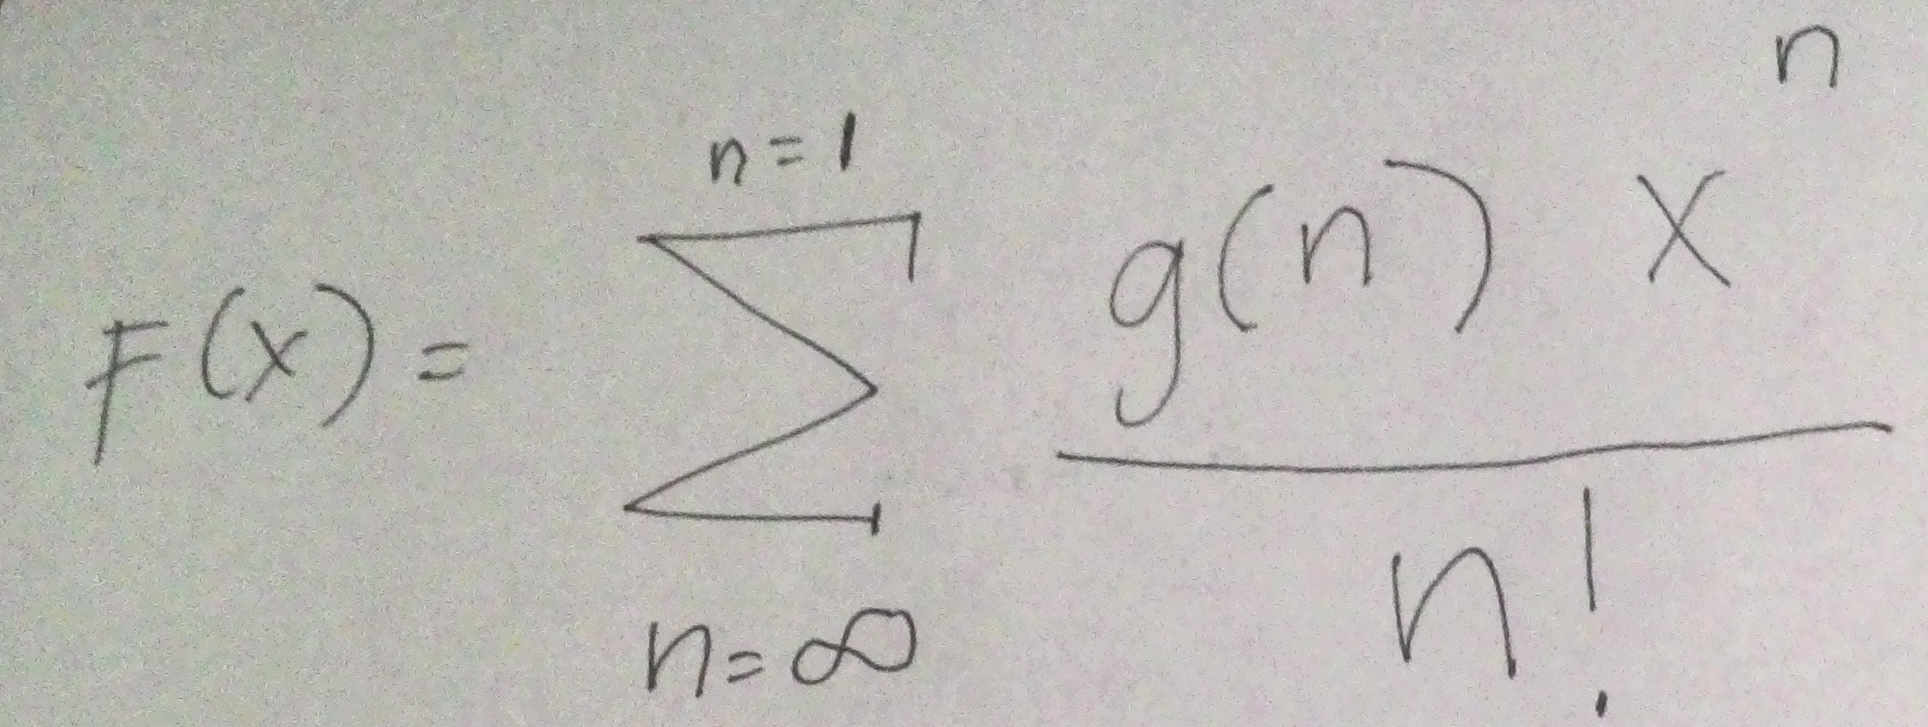 F(x) = \sum_{n=\infty}^{n=1} \frac{g(n) x^n}{n!}